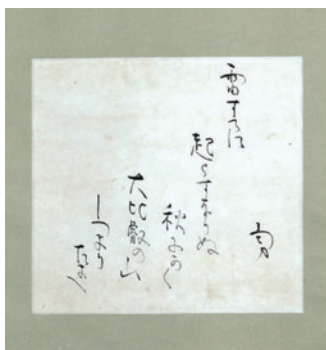 雷すてに
起らすなりぬ
秋ふかく
大比叡の山
しつまり